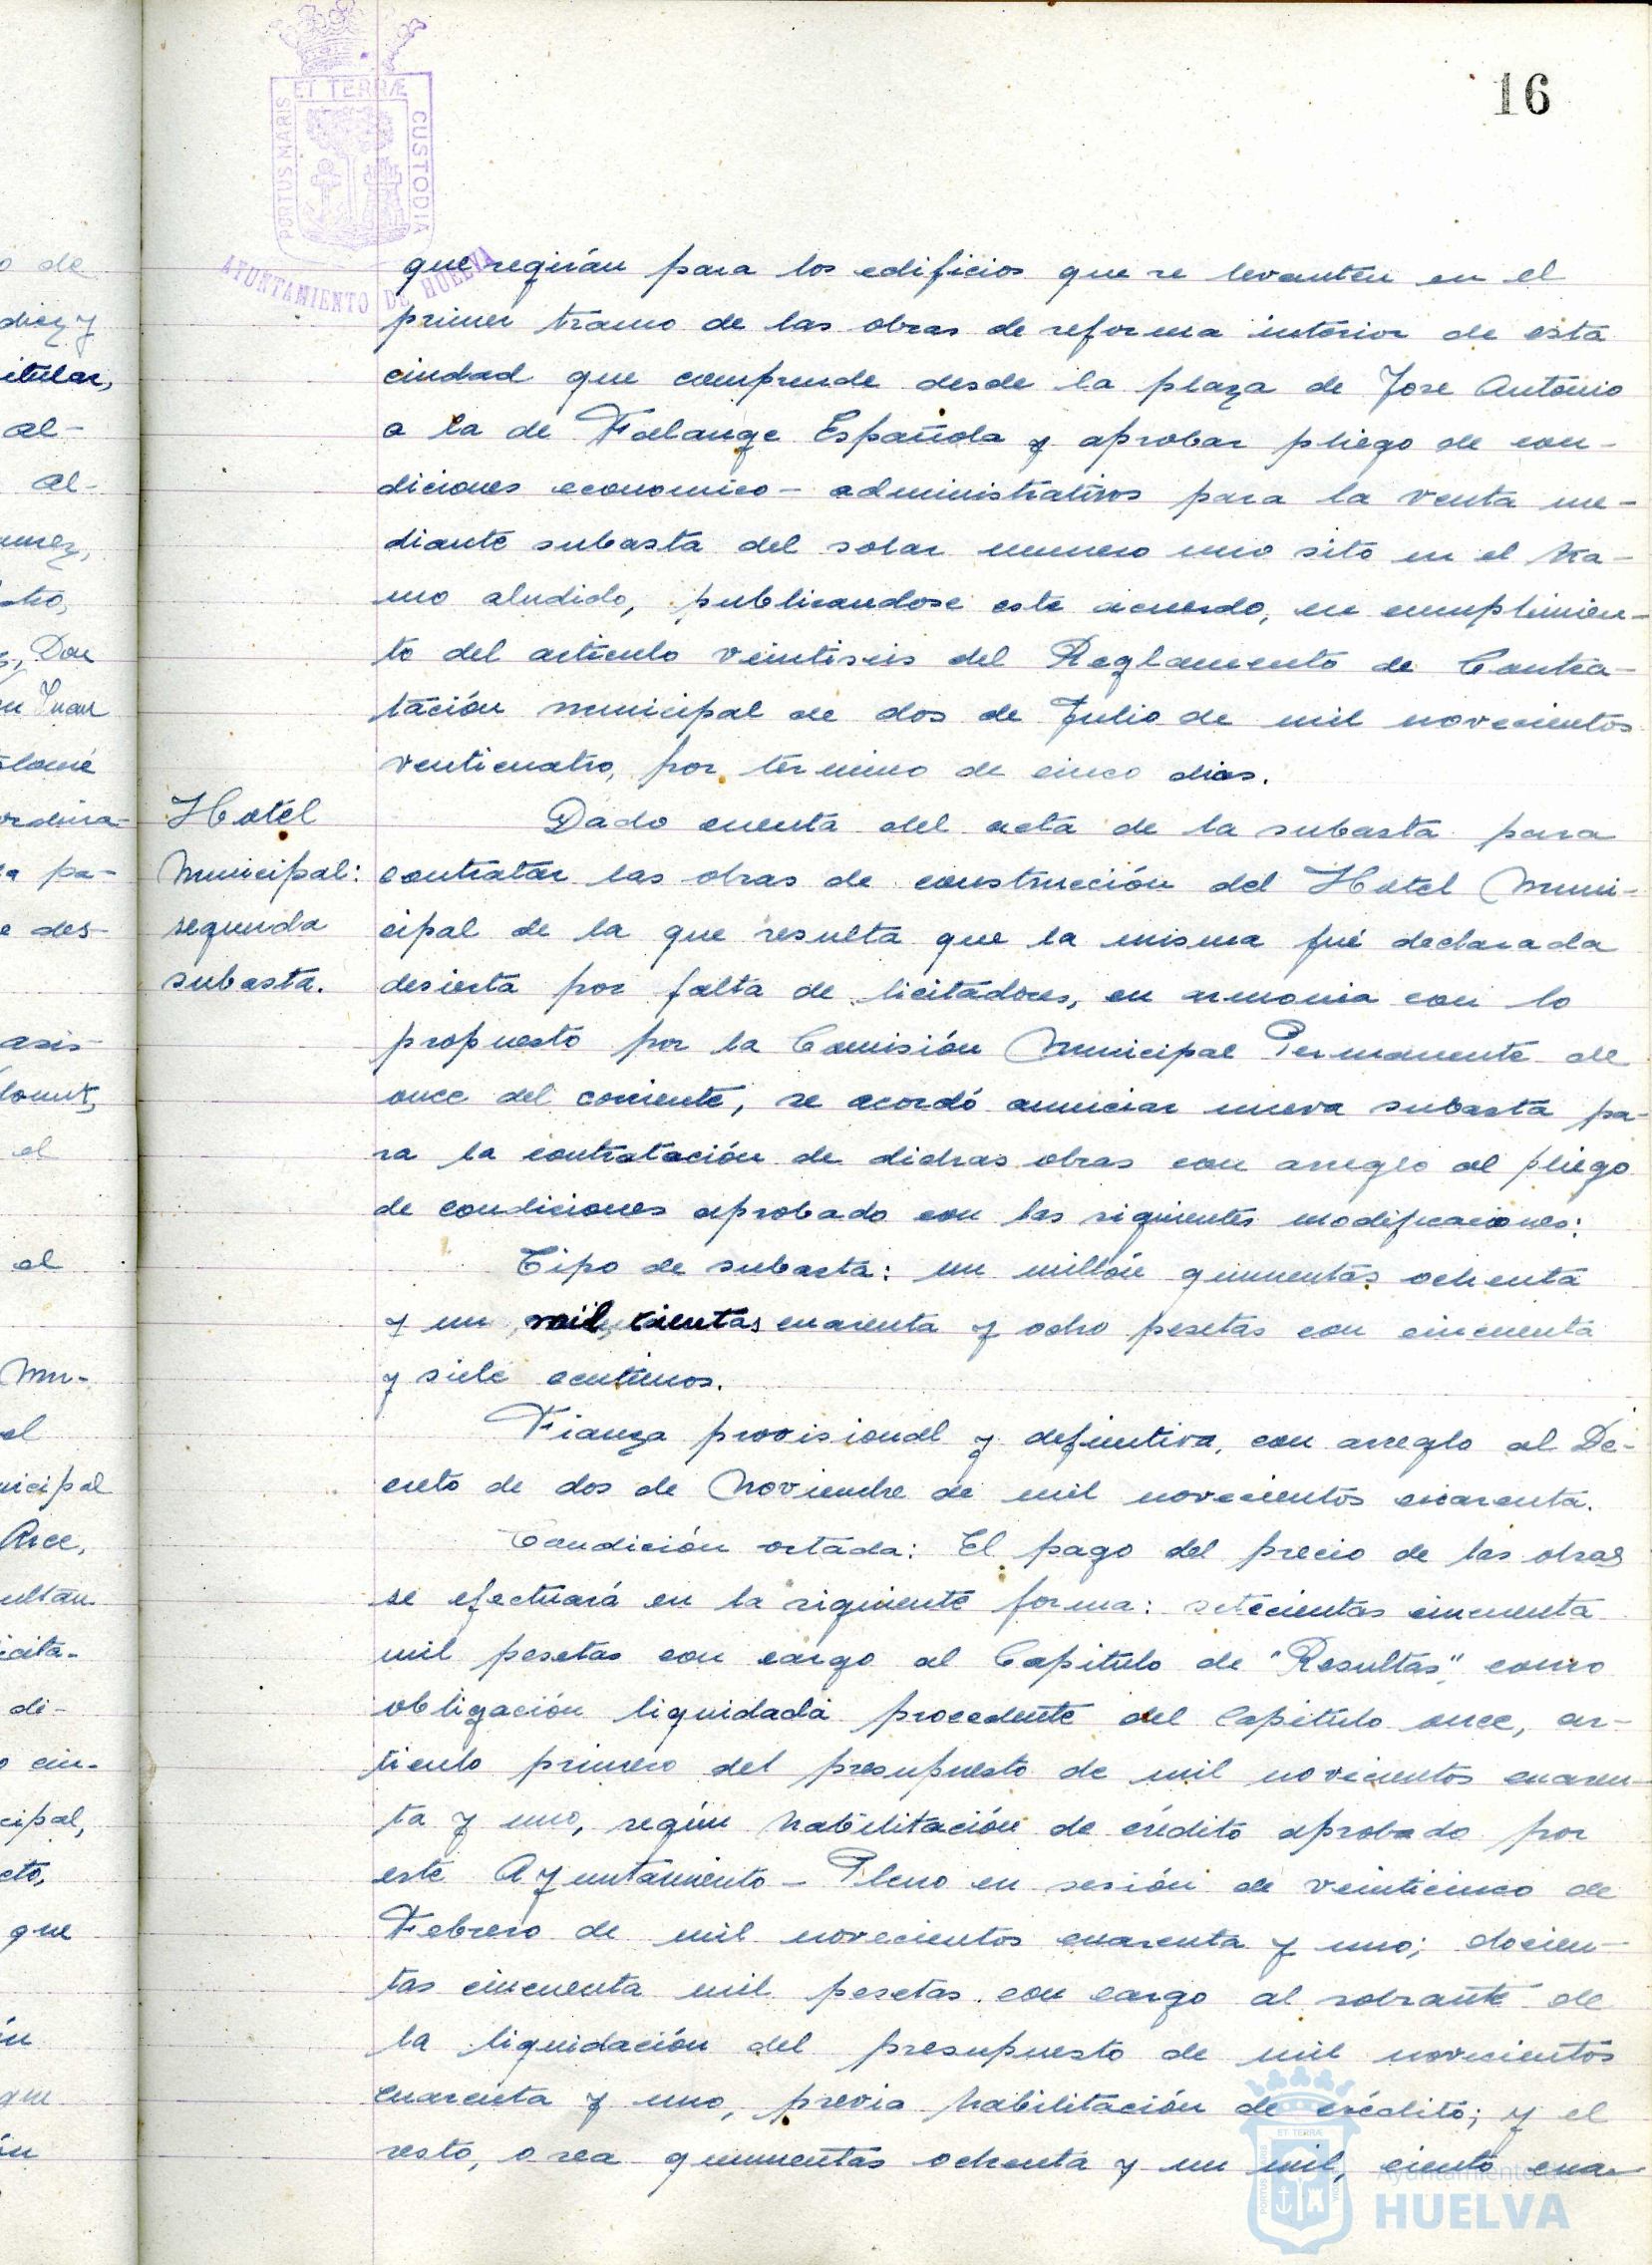 16
PORTUS MARIS ET TERRÆ CUSTODIA
AYUNTAMIENTO DE HUELVA
que regirán para los edificios que se levanten en el
primer tramo de las obras de reforma interior de esta
ciudad que comprende desde la plaza de Jose Antonio
a la de Falange Española y aprobar pliego de con-
diciones economico-administrativos para la venta me-
diante subasta del solar numero uno sito en el tra-
mo aludido, publicandose este acuerdo, en cumplimien-
to del articulo veintiseis del Reglamento de Contra-
tación municipal de dos de Julio de mil novecientos
venticuatro, por termino de cinco dias.
Hotel
Municipal:
segunda
subasta.
Dado cuenta del acta de la subasta para
contratar las obras de construcción del Hotel Muni-
cipal de la que resulta que la misma fué declarada
desierta por falta de licitadores, en armonia con lo
propuesto por la Comisión Municipal Permanente de
once del corriente, se acordó anunciar nueva subasta pa-
ra la contratación de dichas obras con arreglo al pliego
de condiciones aprobado con las siguientes modificaciones:
Tipo de subasta: un millón quinientas ochenta
y un mil cientas cuarenta y ocho pesetas con cincuenta
y siete centimos.
Fianza provisional y definitiva, con arreglo al De-
creto de dos de Noviembre de mil novecientos cuarenta.
Condición octada: El pago del precio de las obras
se efectuará en la siguiente forma: setecientas cincuenta
mil pesetas con cargo al Capitulo de "Resultas", como
obligación liquidada procedente del Capitulo once, ar-
ticulo primero del presupuesto de mil novecientos cuaren-
ta y uno, según habilitación de crédito aprobado por
este Ayuntamiento-Pleno en sesión de veinticinco de
Febrero de mil novecientos cuarenta y uno; docien-
tas cincuenta mil pesetas con cargo al sobrante de
la liquidación del presupuesto de mil novecientos
cuarenta y uno, previa habilitación de crédito; y el
resto, o sea quinientas ochenta y un mil, ciento cua-
Ayuntamiento de
HUELVA
o de
diez y
itular,
al-
al-
Don
Juan
pa-
e des-
asis-
el
el
Mu-
el
nicipal
Arce,
cita-
di-
o cin-
cipal,
cto,
que